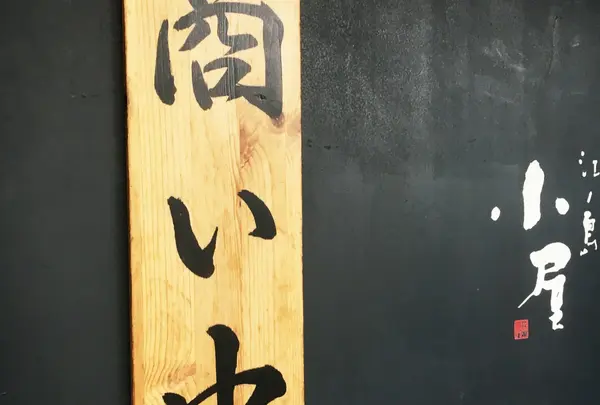 商い中
江ノ島
小屋